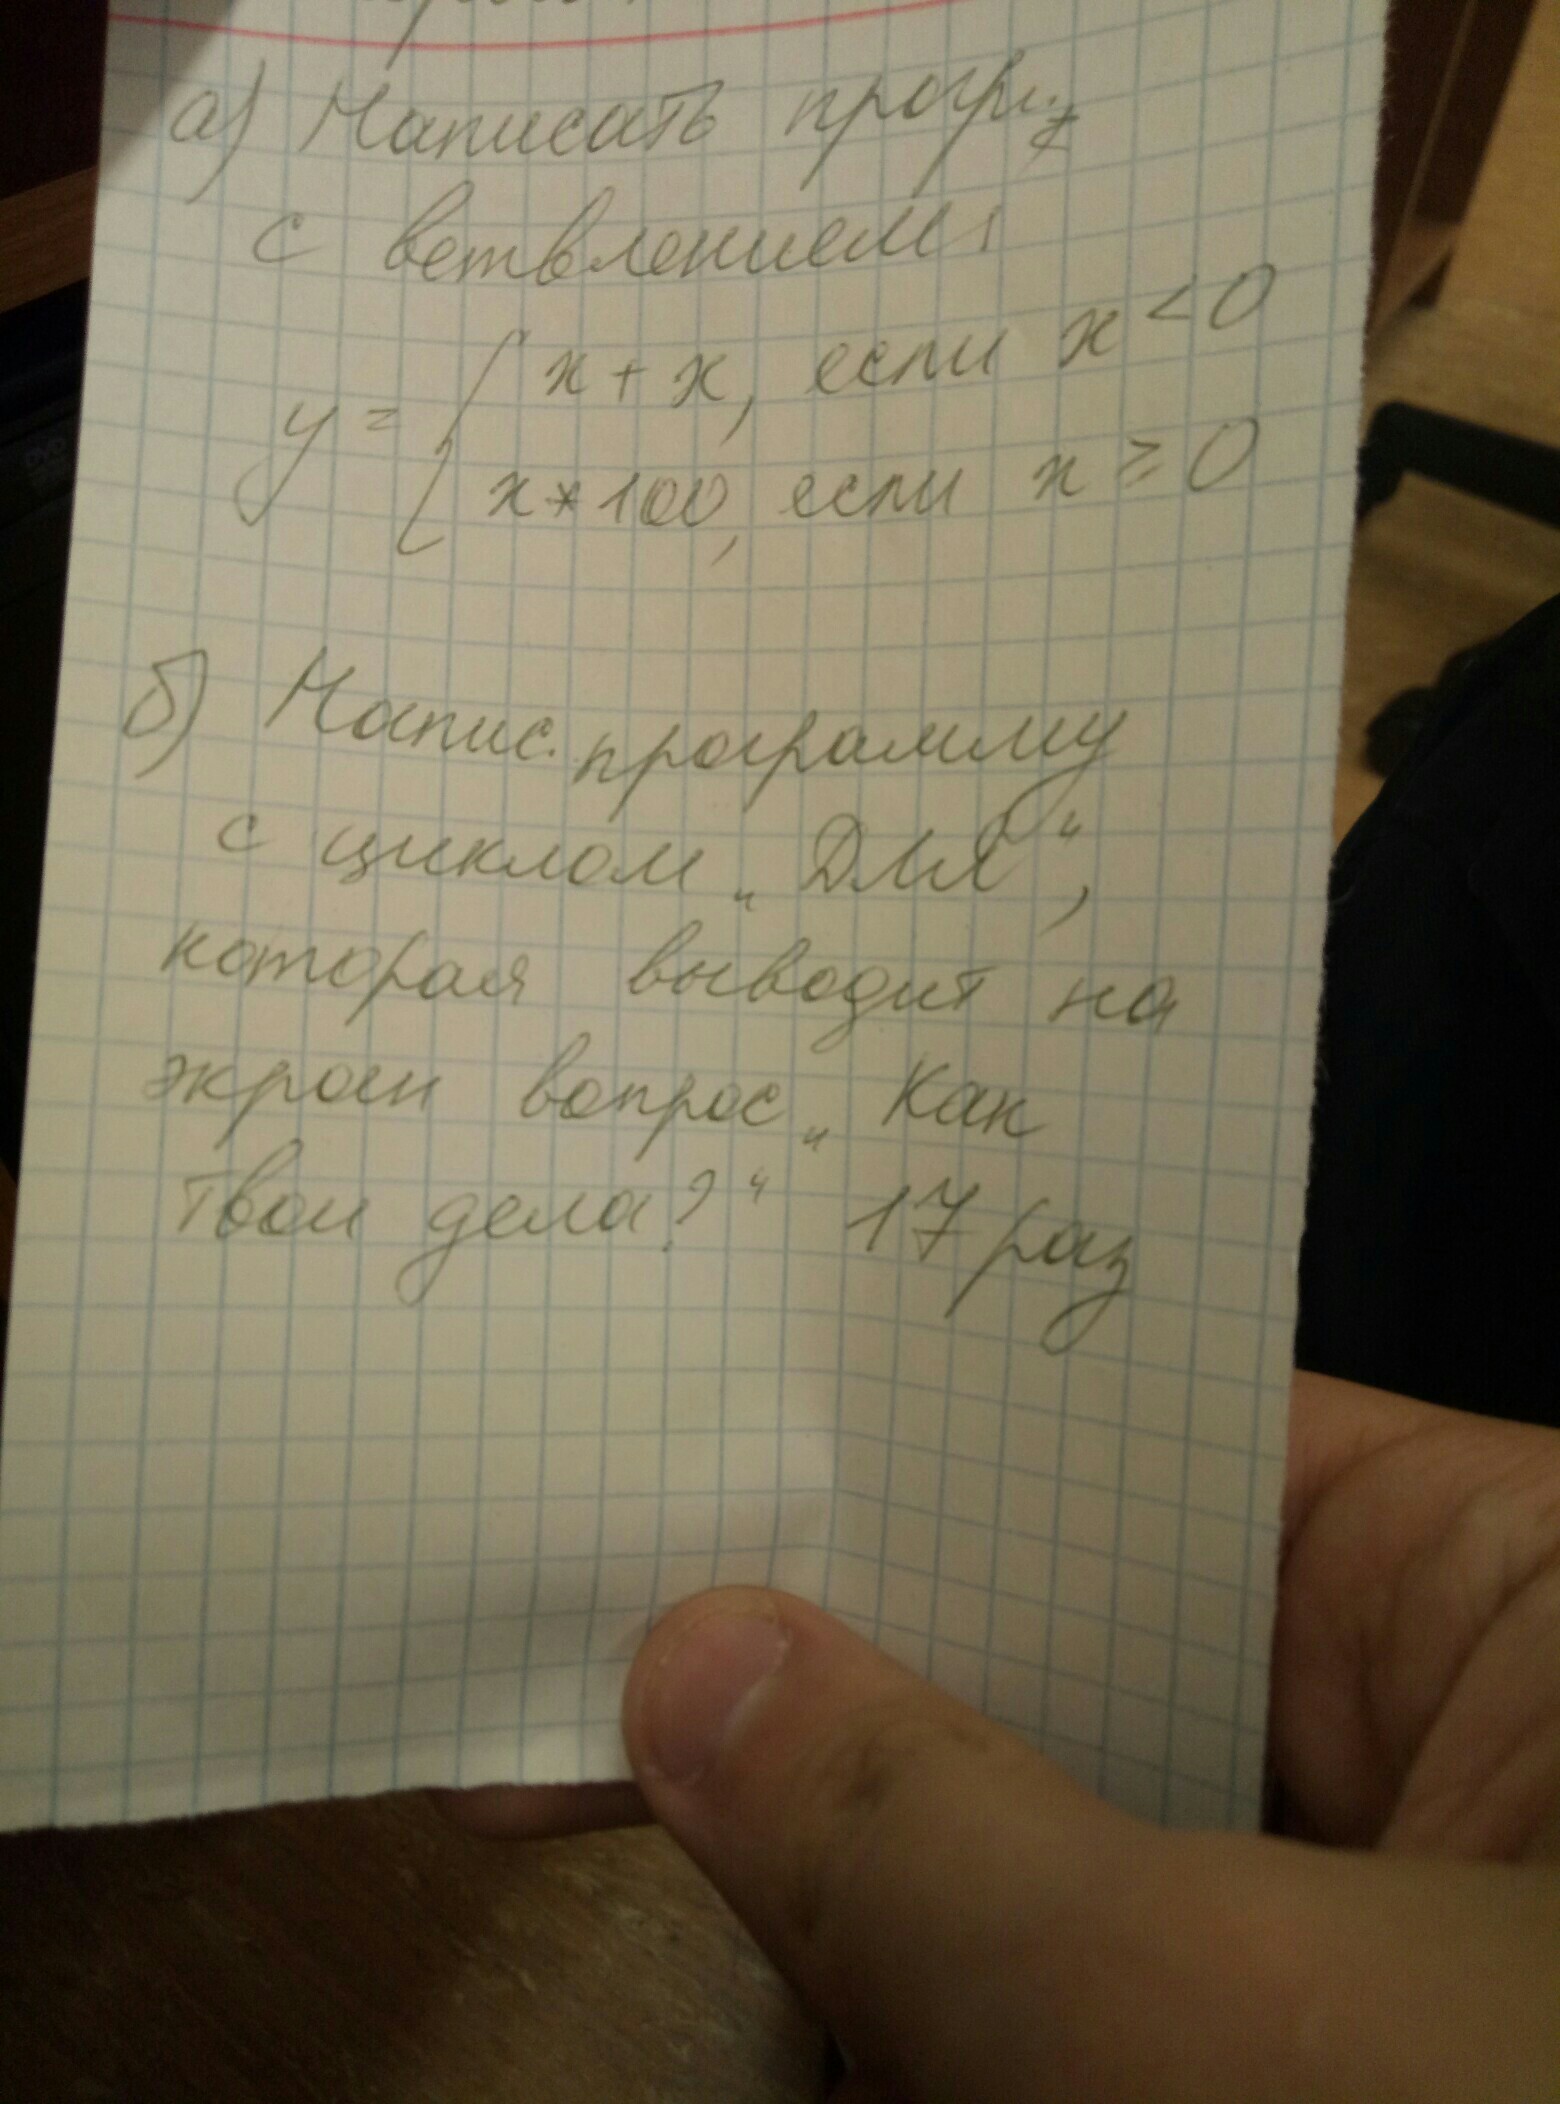 а) Написать
с ветвлением:
y = { x + x, если x < 0
x * 100, если x ≥ 0
б) Напис. программу
с циклом „Для“,
которая выводит на
экран вопрос „Как
твои дела?“ 17 раз